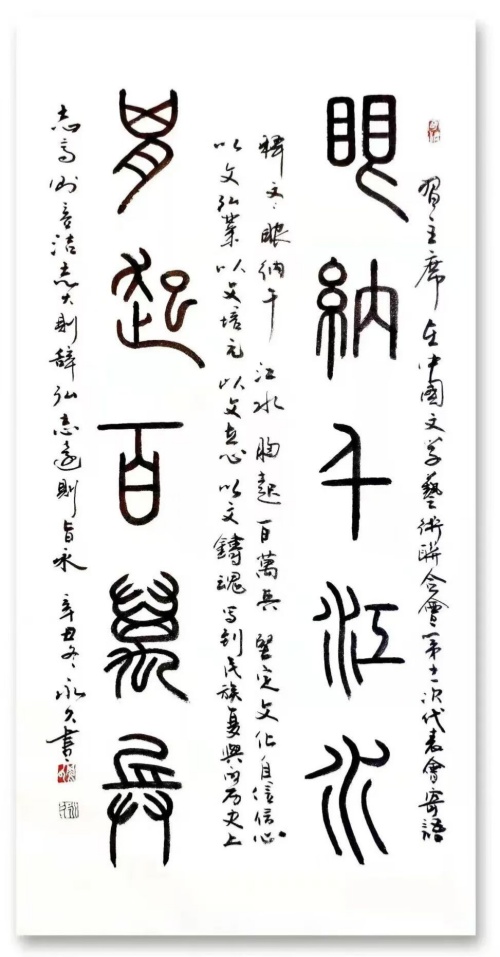 習主席在中國文学藝術聯合會第十一次代表會寄語
眼納千江水
釋文：眼納千江水胸起百萬兵堅定文化自信信心
以文弘業以文培元以文立心以文鑄魂写到民族复興的历史上
胷起百萬兵
志高则言洁志大則辞弘志遠則旨永辛丑冬永久書